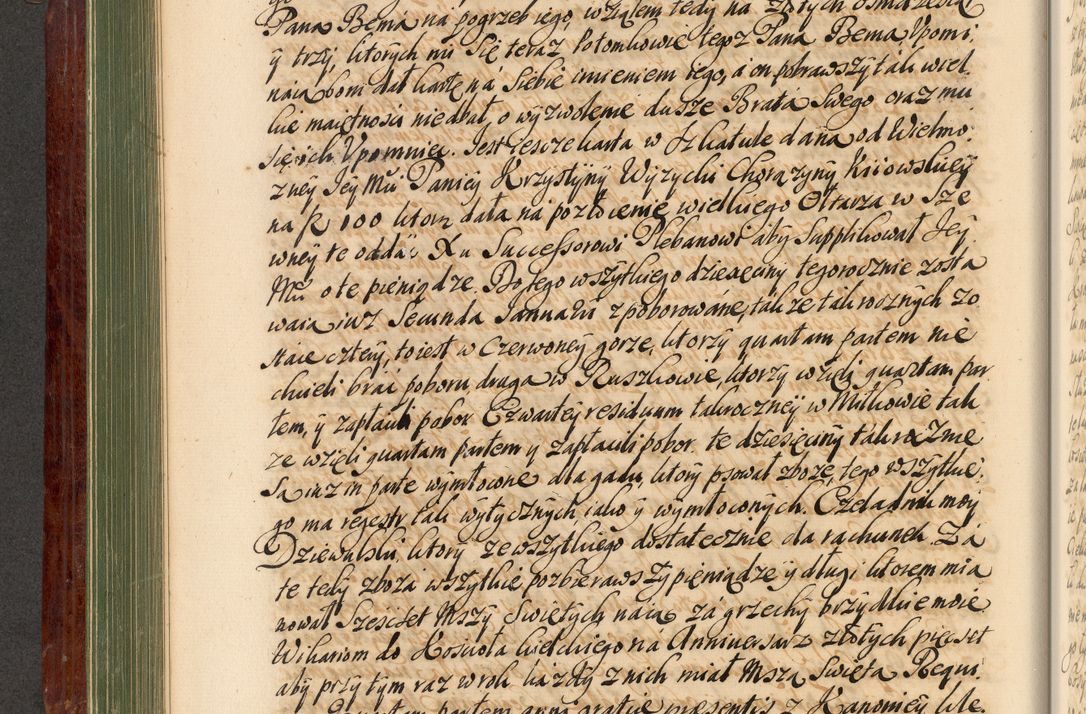 Pana Bema na pogrzeb iego, wziąłem tedy na złotych ośmdziesiąt
y trzy, ktorych mi się teraz Potomkowie tegoz Pana Bema Upomi,
naią bom dał kartę na Siebie imieniem iego, a on pobrawszy tak wiel
kie maiętnosci niedbał, o wyzwolenie dusze Brata Swego oraz mu
się ich Upomniec. Jest ieszcze karta w Szkatule dana od Wielmo
zney Jey Mci Paniey Krzystyny Wyzycki Chorązyny Kiiowskiey
na f 100 ktorą dała na pozłocenie wielkiego Ołtarza w Sze
wney te oddac Xu Successorowi Plebanowi aby Supplikował Jey
Mci o te pieniądze. Do tego wszytkiego dziesięciny tegorocznie zosta
waia iuz Secunda Januarii z poborowane, takze takrocznych zo
staie cztery, to iest w Czerwoney gorze, ktorzy quartam partem nie
chcieli brac poboru druga w Ruszkowie, ktorzy wzięli quartam par
tem, y zapłacili pobor Czwartey residuum takroczney w Miłkowie tak
ze wzięli quartam partem y zapłacili pobor. te dziesięciny takroczne
Są iuz in parte wymłocone dla gadu, ktory psował zboze, tego wszytkie,
go ma regestr tak wytycznych iako y wymłoconych. Czeladnik moy
Dziewulski, ktory ze wszytkiego dostatecznie da rachunek. Za
te tedy zboza wszytkie pozbierawszy pieniądze y długi ktorem mia
nował Szescset Mszy Swiętych naiąc za grzechy brzydkie moie
Wikariom do Koscioła kieleckiego na Anniuersarz złotych pięcset
aby przy tym raz w rok kazdy z nich miał Msza Swięta Requi.
partem anni gratiae praesentis z Kanoniey kie.